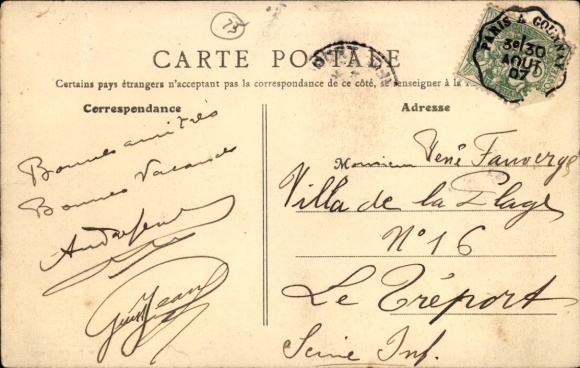 73
CARTE POSTALE
Certains pays étrangers n'acceptant pas la correspondance de ce côté, se renseigner à la
Correspondance
Bonnes amitiés
Bonnes Vacances
Jean
Adresse
PARIS A GOURNAY
3e/30
AOUT
07
Monsieur René Fauvergé
Villa de la Plage
N° 16
Le Tréport
Seine Inf.